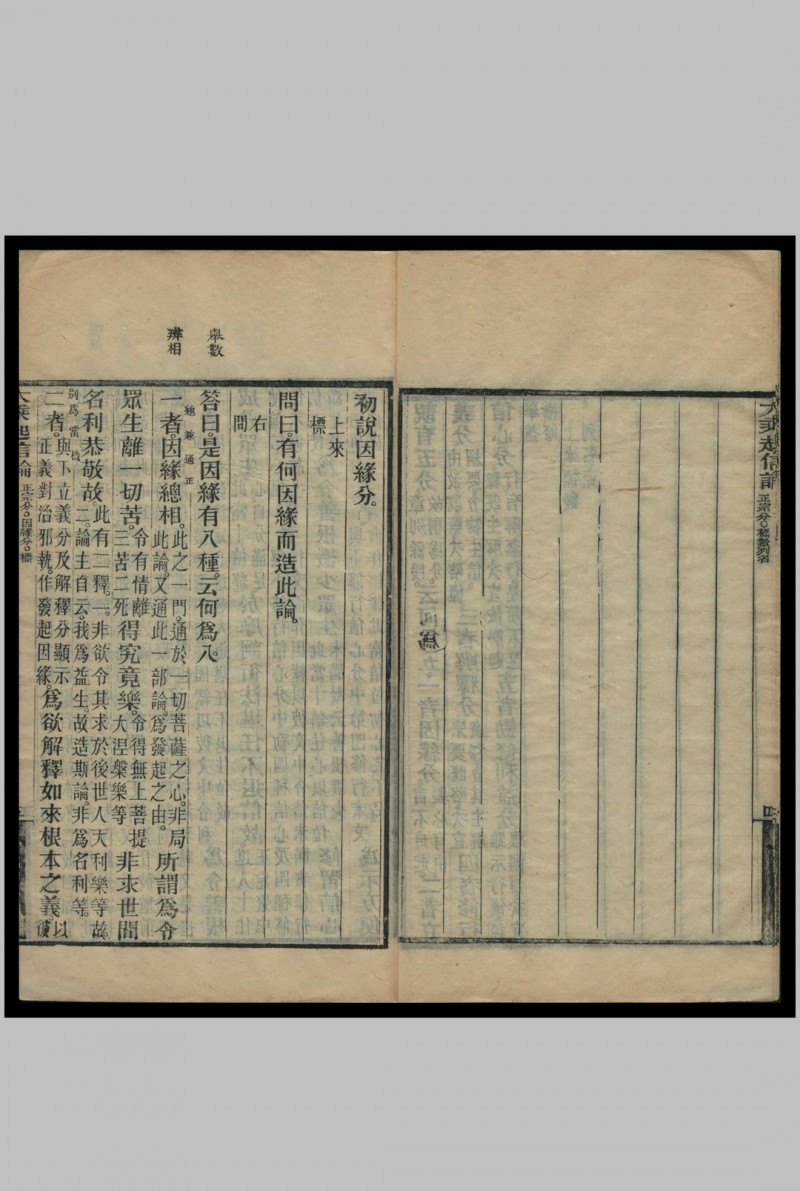 大乘起信論 正宗分○標數列名
四
初說因緣分。
上來
標
問曰。有何因緣而造此論。
右
問
舉數
答曰。是因緣有八種。云何為八。
總兼通正
辨相
一者。因緣總相。此之一門。通於一切菩薩之心。非局
此論。又通此一部論。為發起之由。所謂為令
眾生離一切苦。令有情離
三苦二死得究竟樂。令得無上菩提
大涅槃樂等非求世間
名利恭敬故此有二釋。一。非欲令其求於後世人天利樂等故。
二。論主自云。我為益生。故造斯論。非為名利等。
別為當機
二者。與下立義分及解釋分顯示
正義對治邪執。作發起因緣。為欲解釋如來根本之義。以
彼
大乘起信論 正宗分○因緣分○標